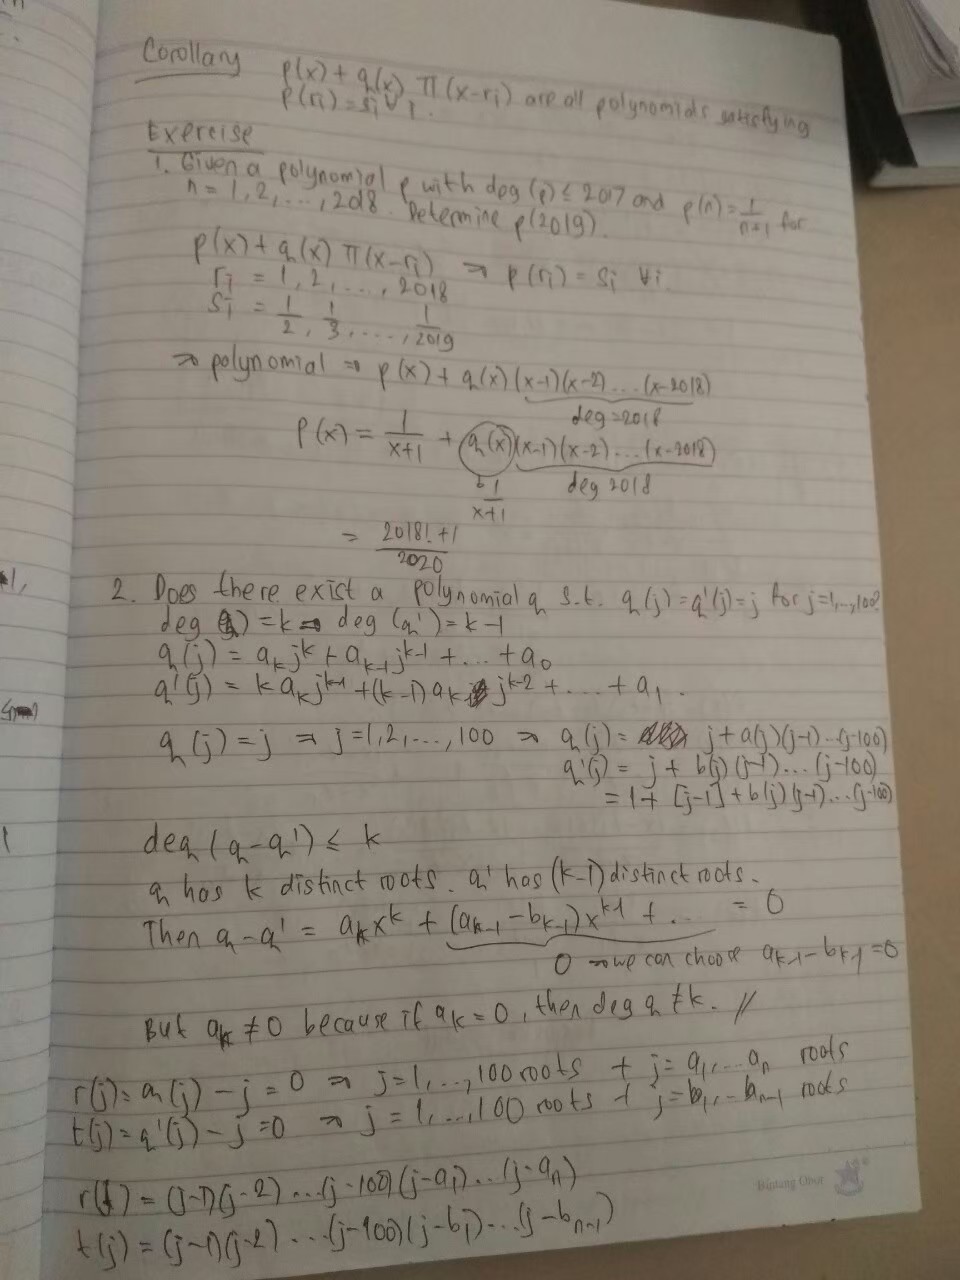 Corollary p(x) + q(x) π(x-ri) are all polynomials satisfying
p(ri) = si ∀ i.
Exercise
1. Given a polynomial p with deg (p) ≤ 2017 and p(n) = 1/(n+1) for
n = 1, 2, ..., 2018. Determine p(2019).
p(x) + q(x) π(x-ri) ⇒ p(ri) = si ∀i.
ri = 1, 2, ..., 2018
si = 1/2, 1/3, ..., 1/2019
⇒ polynomial ⇒ p(x) + q(x)(x-1)(x-2)....(x-2018)
deg = 2018
p(x) = 1/(x+1) + q(x)(x-1)(x-2)....(x-2018)
1/(x+1) deg 2018
= (2018! + 1)/2020
2. Does there exist a polynomial q s.t. q(j) = q'(j) = j for j=1,..,100?
deg (q) = k ⇒ deg (q') = k-1
q(j) = a_k j^k + a_{k-1} j^{k-1} + ... + a_0
q'(j) = k a_k j^{k-1} + (k-1) a_{k-1} j^{k-2} + ... + a_1.
q(j) = j ⇒ j=1,2,...,100 ⇒ q(j) = j + a(j)(j-1)...(j-100)
q'(j) = j + b(j)(j-1)...(j-100)
= 1 + [j-1] + b(j)(j-1)...(j-100)
deg (q-q') ≤ k
q has k distinct roots. q' has (k-1) distinct roots.
Then q-q' = a_k x^k + (a_{k-1} - b_{k-1}) x^{k-1} + .. = 0
0 ⇒ we can choose a_{k-1} - b_{k-1} = 0
But a_k ≠ 0 because if a_k = 0, then deg q ≠ k. //
r(j) = q(j) - j = 0 ⇒ j=1,..,100 roots + j= a_1,...a_n roots
t(j) = q'(j) - j = 0 ⇒ j=1,...,100 roots + j= b_1,.. b_{n-1} roots
r(j) = (j-1)(j-2) ...(j-100)(j-a_1)...(j-a_n)
t(j) = (j-1)(j-2) ...(j-100)(j-b_1)...(j-b_{n-1})
Bintang Obor